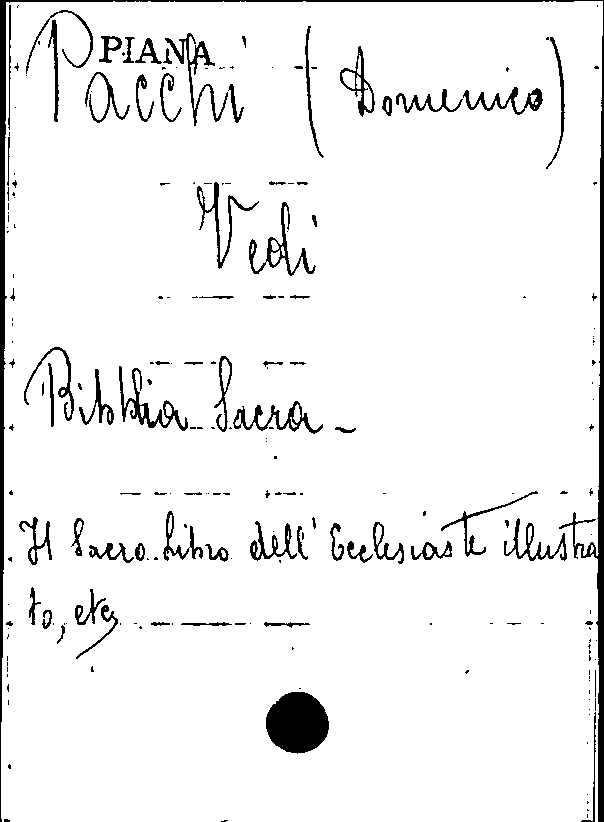 PIANA
Pacchi (Domenico)
Vedi
Bibbia Sacra -
Il Sacro Libro dell' Ecclesiaste illustra
to, etc